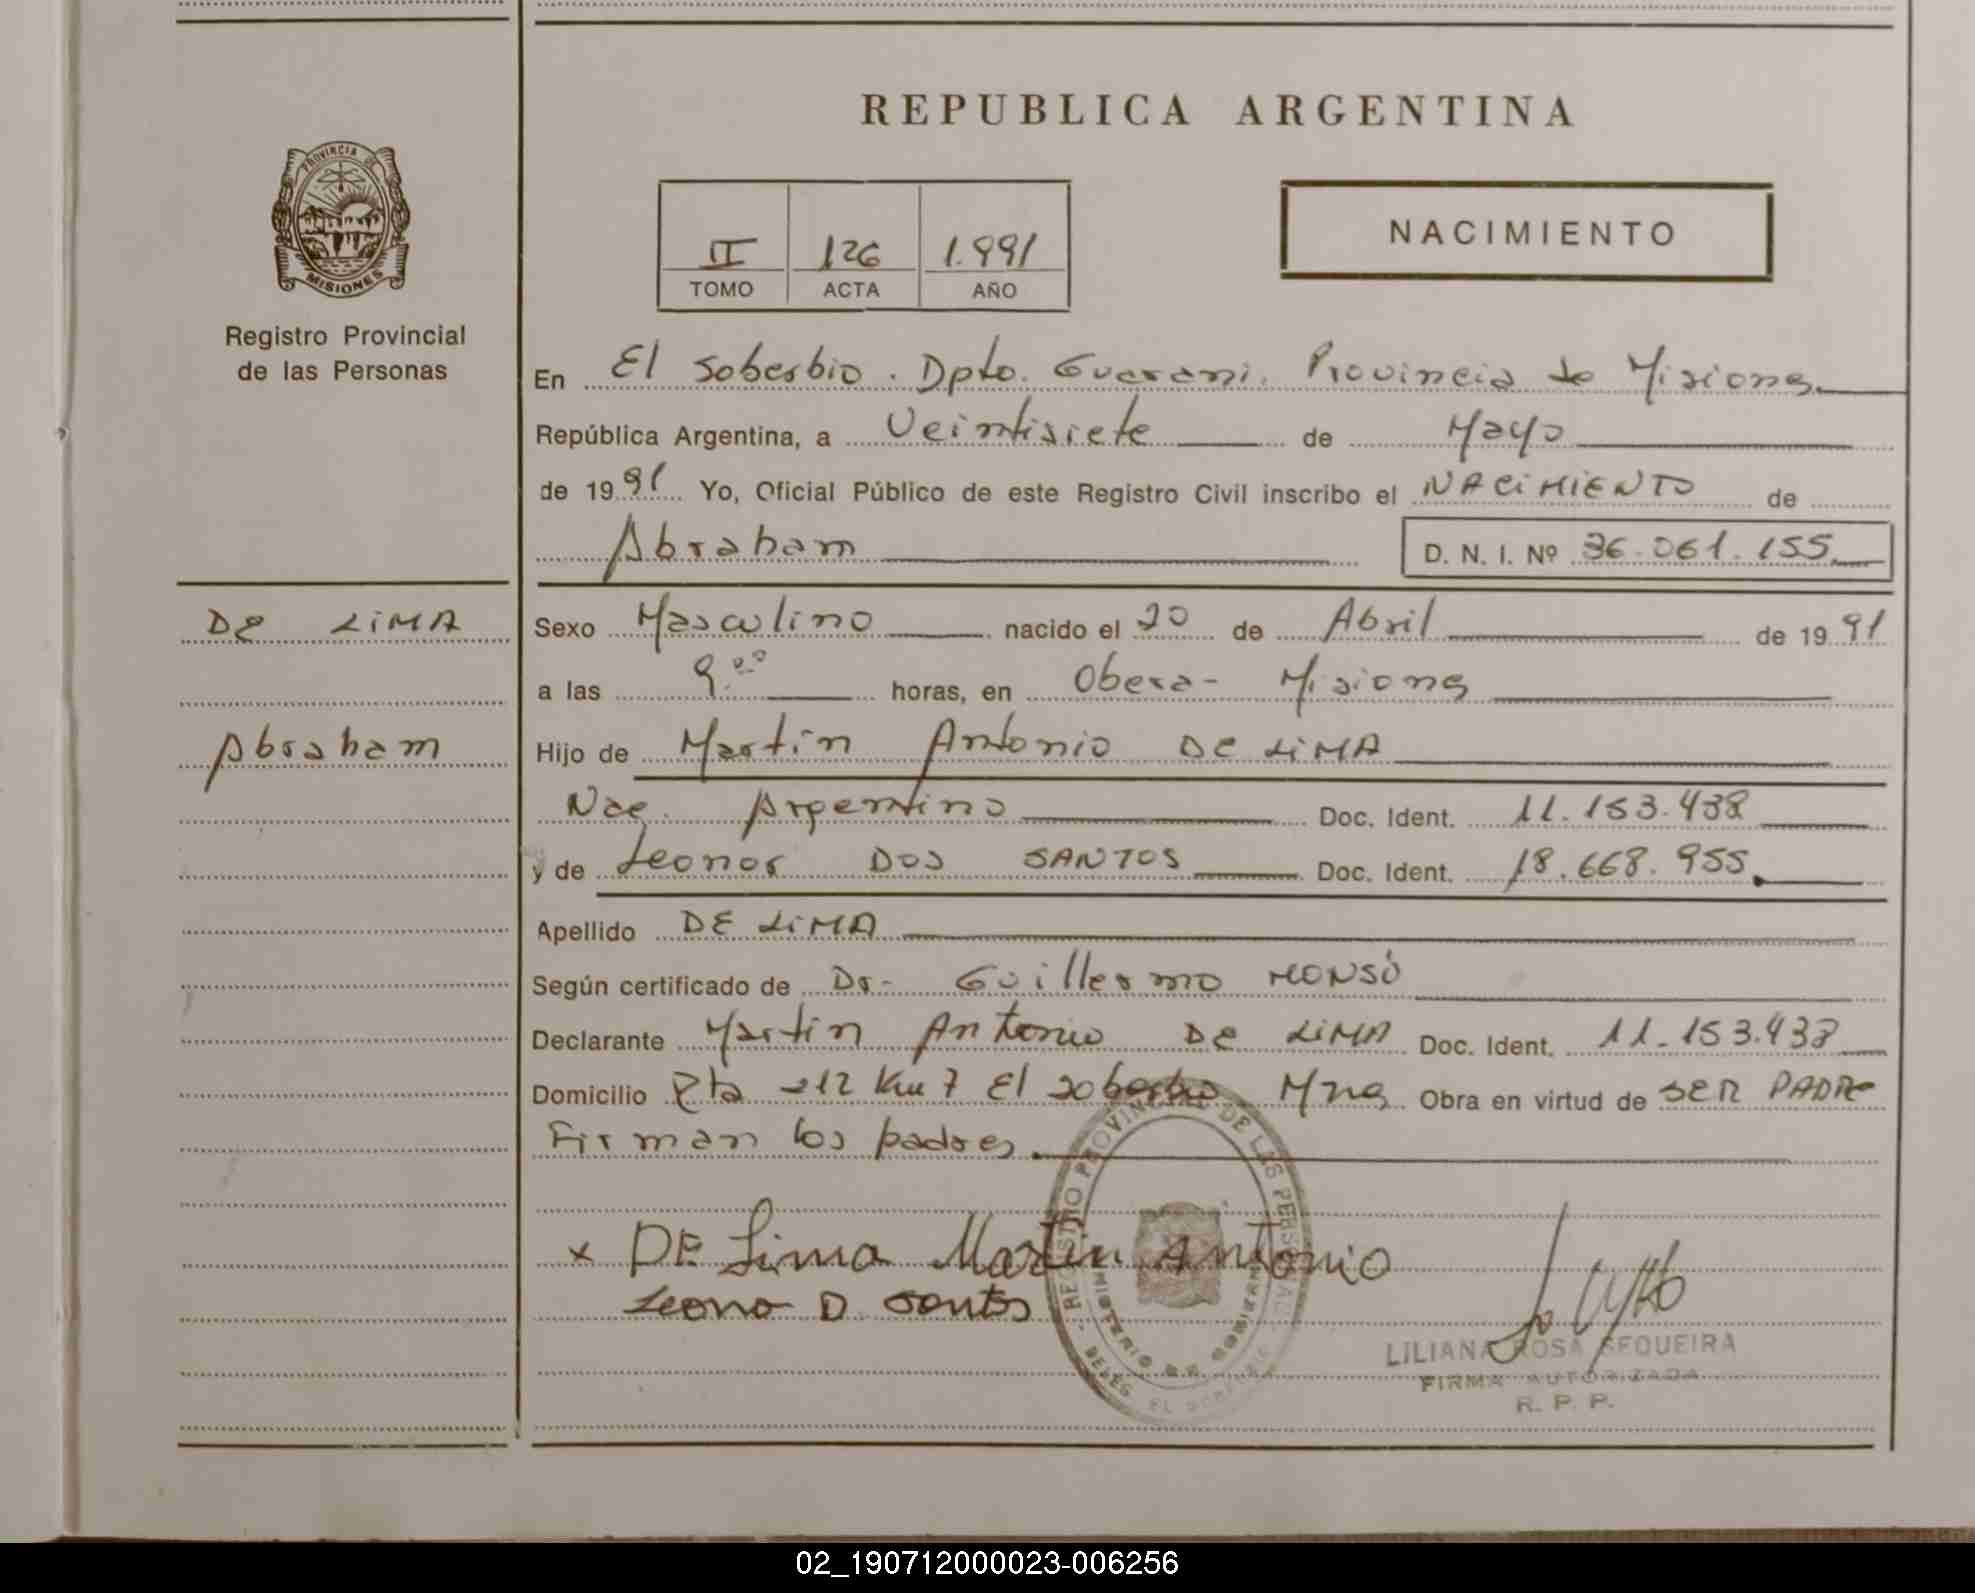 REPUBLICA ARGENTINA
PROVINCIA DE
MISIONES
Registro Provincial
de las Personas
NACIMIENTO
II 126 1.991
TOMO ACTA AÑO
En El Soberbio. Dpto. Guarani. Provincia de Misiones
República Argentina, a Veintisiete de Mayo
de 1991 Yo, Oficial Público de este Registro Civil inscribo el NACIMIENTO de
Abraham D. N. I. Nº 36.061.155
DE LIMA
Abraham
Sexo Masculino nacido el 20 de Abril de 1991
a las 9.00 horas, en Obera - Misiones
Hijo de Martin Antonio DE LIMA
Nac. Argentino Doc. Ident. 11.153.438
y de Leonor DOS SANTOS Doc. Ident. 18.668.955
Apellido DE LIMA
Según certificado de Dr. Guillermo MONSÓ
Declarante Martin Antonio DE LIMA Doc. Ident. 11.153.438
Domicilio Rta 212 Km 7 El Soberbio Mnes Obra en virtud de SER PADRE
Firman los padres
x DE Lima Martin Antonio
Leono D. Santos
REGISTRO PROVINCIAL DE LAS PERSONAS
MINISTERIO DE GOBIERNO
DELEG. EL SOBERBIO
LILIANA ROSA SEQUEIRA
FIRMA AUTORIZADA
R. P. P.
02_190712000023-006256